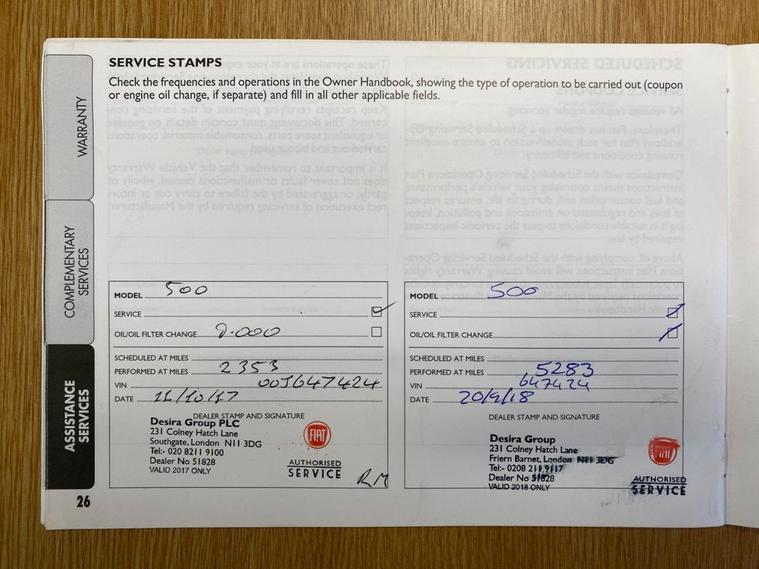 SERVICE STAMPS
Check the frequencies and operations in the Owner Handbook, showing the type of operation to be carried out (coupon
or engine oil change, if separate) and fill in all other applicable fields.
WARRANTY
COMPLEMENTARY
SERVICES
ASSISTANCE
SERVICES
MODEL 500
SERVICE
OIL/OIL FILTER CHANGE 9.000
SCHEDULED AT MILES
PERFORMED AT MILES 2353
VIN 001647424
DATE 11/10/17
DEALER STAMP AND SIGNATURE
Desira Group PLC
231 Colney Hatch Lane
Southgate, London N11 3DG
Tel:- 020 8211 9100
Dealer No 51828
VALID 2017 ONLY
FIAT
AUTHORISED
SERVICE
RM
MODEL 500
SERVICE
OIL/OIL FILTER CHANGE
SCHEDULED AT MILES
PERFORMED AT MILES 5283
VIN 647424
DATE 20/9/18
DEALER STAMP AND SIGNATURE
Desira Group
231 Colney Hatch Lane
Friern Barnet, London N11 3DG
Tel:- 0208 211 9117
Dealer No 51828
VALID 2018 ONLY
FIAT
AUTHORISED
SERVICE
26